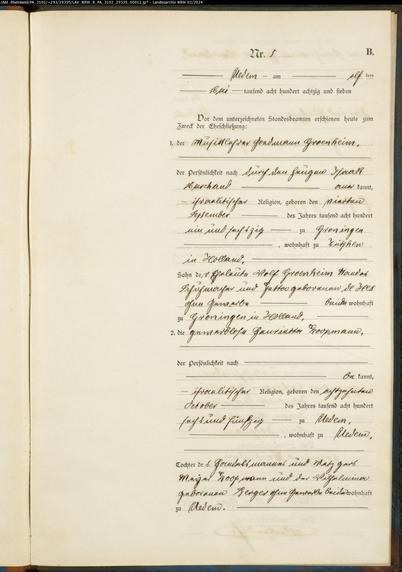 Nr. 5
B.
Uedem am elf ten
Mai tausend acht hundert achtzig und sieben
Vor dem unterzeichneten Standesbeamten erschienen heute zum
Zweck der Eheschließung:
1. der Groenheim,
der Persönlichkeit nach durch den Zeugen Isaak
Marchand aner kannt,
israelitischer Religion, geboren den vierten
September des Jahres tausend acht hundert
ein und sechszig zu Groningen
, wohnhaft zu Zutphen
in Holland,
Sohn der Eheleute Wolf Groenheim
und geborenen de
ohne Gewerbe beide wohnhaft
zu Groningen in Holland,
2. die gewerblose Henrietta Koopmann,
der Persönlichkeit nach
be kannt,
israelitischer Religion, geboren den achtzehnten
October des Jahres tausend acht hundert
sechs und fünfzig zu Uedem,
, wohnhaft zu Uedem,
Tochter des Handelsmannes und Metzgers
Meyer Koopmann und der Wilhelmina
geborenen Berger ohne Gewerbe beide wohnhaft
zu Uedem.